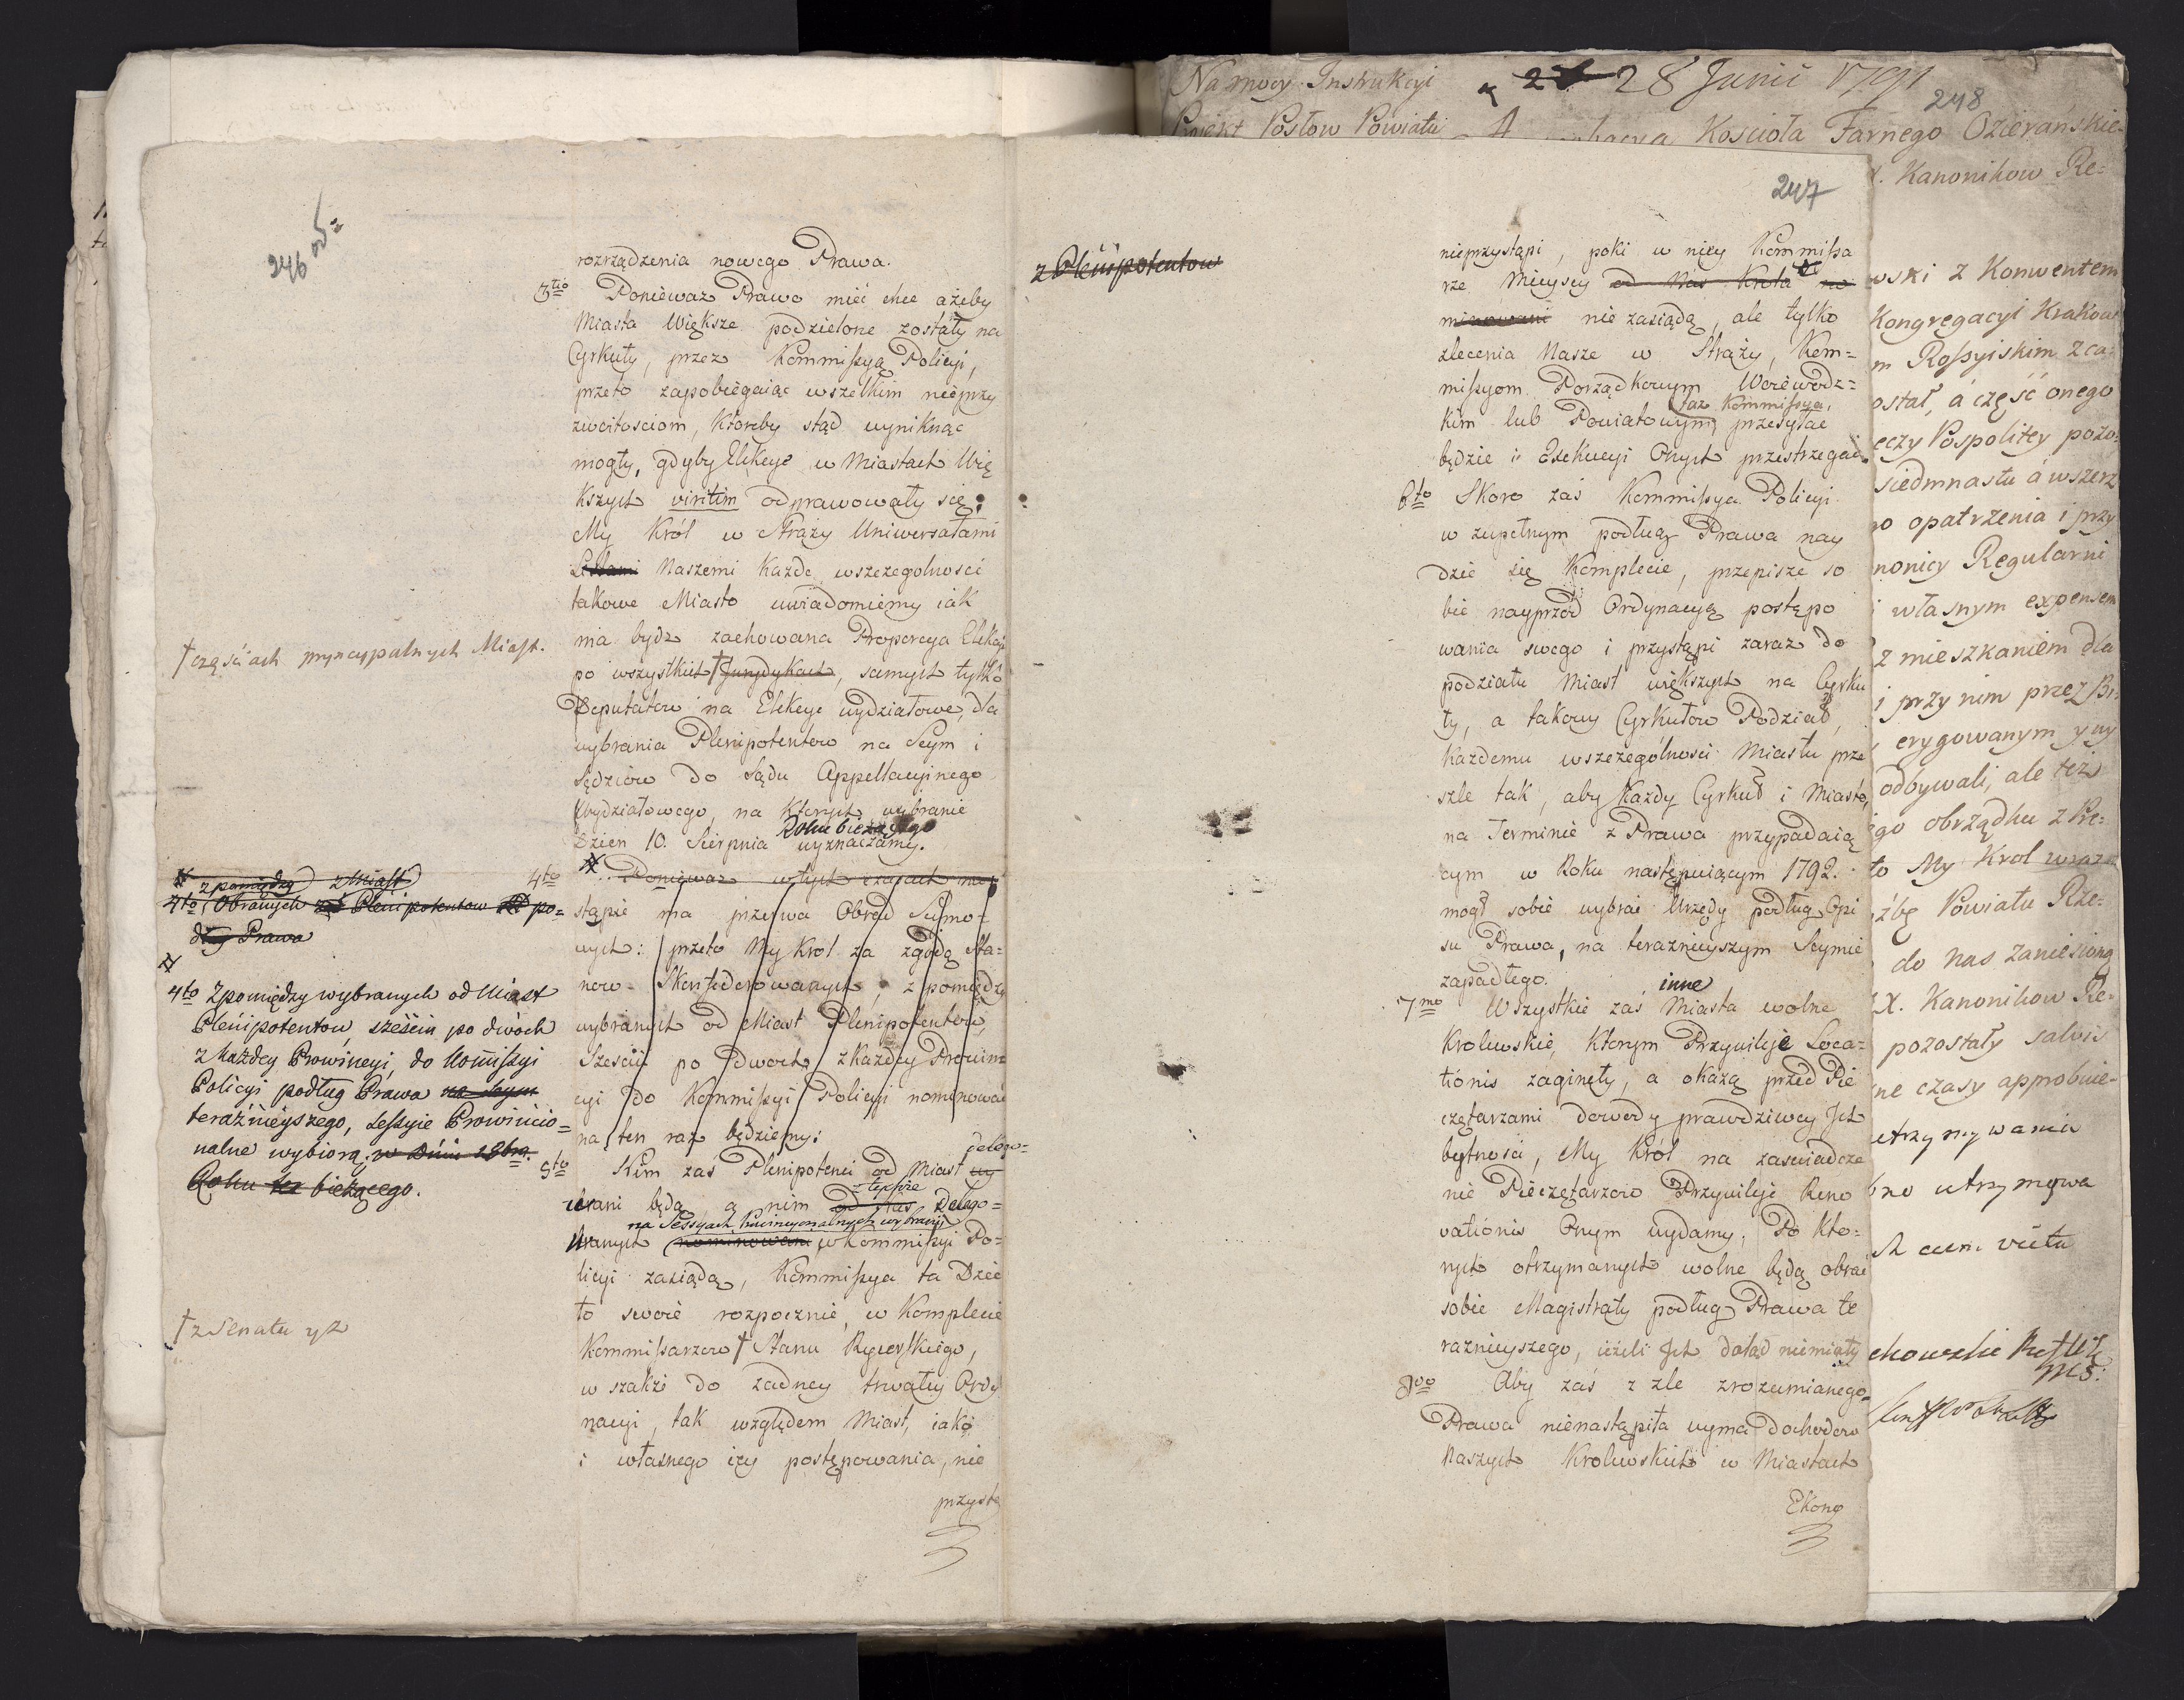 246 od=
rozrządzenia nowego Prawa.
3tio Ponieważ Prawo mieć chce ażeby
Miasta Większe podzielone zostały na
Cyrkuły, przez Kommissyą Policyi,
przeto zapobiegaiąc wszelkim nieprzy
zwoitosciom, któreby stąd wyniknąć
mogły, gdyby Elekcye w Miastach Wię
kszych viritim odprawowały się:
My Król w Straży Uniwersałami
Listami Naszemi każde wszczegolnosci
takowe Miasto uwiadomiemy iak
ma bydz zachowana Proporcya Elekcyi
po wszystkich † Jurydykach, samych tylko
† częściach pryncypalnych Miast.
Deputatow na Elekcye wydziałowe, dla
wybrania Plenipotentow na Seym i
Sędziow do Sądu Appellacyinego
Wydziałowego, na których wybranie
Roku bieżącego
Dzien 10. Sierpnia wyznaczamy.
z pomiędzy z Miast
4to Obranych Plenipotentow po=
dług Prawa
4to Ponieważ w tych czasach na
stąpić ma przerwa Obrad Seymo=
wych: przeto My Krol za zgodą Sta=
now Skonfederowanych, z pomiędzy
wybranych od Miast Plenipotentow,
Szesciu po dwoch z każdey Prowin
cyi do Kommissyi Policyi nominować
na ten raz będziemy:
4to Zpomiędzy wybranych od Miast
Plenipotentow, sześciu po dwóch
z każdey Prowincyi, do Kommissyi
Policyi podług Prawa na Seym
teraźnieyszego, sessyie Prowincio=
nalne wybiorą; w Dniu 18bra.
Roku bieżącego.
5to Nim zaś Plenipotenci od Miast wy
delego=
brani będą a nim od nas Delego=
z tychże
na Sessyach Prowincyonalnych wybrani
wanych nominowani w Kommissyi Po=
licyi zasiędą, Kommissya ta Dzieł
to swoie rozpocznie, w Komplecie
Kommissarzow † Stanu Rycerskiego,
† z Senatu y z
wszakże do żadney trwałey Ordy
nacyi, tak względem Miast, iako
i własnego iey postępowania, nie
przystą
247
z Plenipotentow
nieprzystąpi, poki w niey Kommissa
rze Mieyscy od Nas Krola no
minowani nie zasiądą, ale tylko
zlecenia Nasze w Straży, Kom=
missyom Porządkowym Woiewodz=
taż Kommissya,
kim lub Powiatowym przesyłać
będzie i Exekucyi Onych przestrzegać.
6to Skoro zaś Kommissya Policyi
w zupełnym podług Prawa nay
dzie się Komplecie, przepisze so
bie nayprzod Ordynacyą postępo
wania swego i przystąpi zaraz do
podziału Miast większych na Cyrku
ły, a takowy Cyrkułow Podział,
każdemu wszczególnosci Miastu prze
szle tak, aby każdy Cyrkuł i Miasto,
na Terminie z Prawa przypadaią
cym w Roku następuiącym 1792.
mogł sobie wybrać Urzędy podług Opi
su Prawa, na teraznieyszym Seymie
zapadłego.
inne
7mo Wszystkie zaś Miasta wolne
Krolewskie, którym Przywileje Loca=
tionis zaginęły, a okażą przed Pie
czętarzami dowody prawdziwey Ich
bytnosci, My Król na zaswiadcze
nie Pieczętarzow Przywileje Reno
vationis Onym wydamy. Po kto=
rych otrzymanych wolne będą obrać
sobie Magistraty podług Prawa te
raznieyszego, ieżeli Ich dotąd niemiały
8vo Aby zaś z zle zrozumianego
Prawa nienastąpiła uyma dochodow
Naszych Krolewskich w Miastach
Ekono
Na mocy Instrukcyi
Projekt Posłow Powiatu
28 Junii 1791
248
Kościoła Farnego Ozierańskie
X. Kanonikow Re=
wski z Konwentem
Kongregacyi Krakow
m Rossyiskim zca=
ostał, á część onego
eczy Pospolitey pozo=
siedmnastu á wszerz
o opatrzenia i przy
nonicy Regularni
i własnym expensem
z mieszkaniem dla
i przy nim przez Br:
erygowanym y uy
odbywali, ale też
go obrządku z Prze:
to My Krol wraz
źbę Powiatu Rze=
do nas zaniesioną
X. Kanonikow Re=
pozostały salvis
ne czasy approbuie=
utrzymywania
no utrzymywa
cum vietu